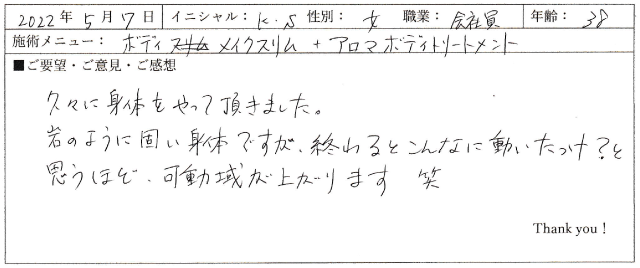 2022年 5月 17日 イニシャル： K.S 性別： 女 職業： 会社員 年齢： 38
施術メニュー： ボディ メイクスリム + アロマボディトリートメント
■ご要望・ご意見・ご感想
久々に身体をやって頂きました。
岩のように固い身体ですが、終わるとこんなに動いたっけ？と
思うほど、可動域が上がります 笑
Thank you！